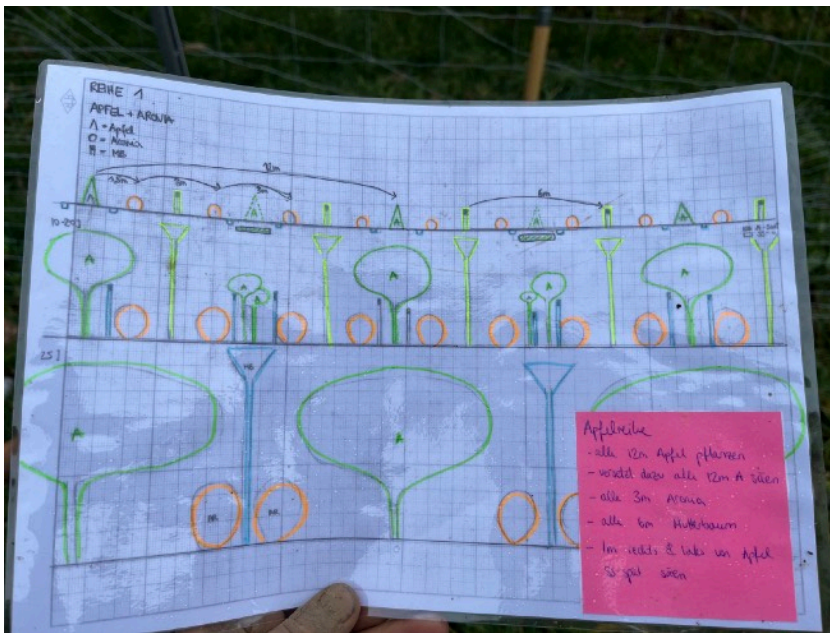 REIHE 1
APFEL + ARONIA
A = Apfel
O = Aronia
= MB
12m
1,5m 3m 3m 6m
A A
A A A A A A
A MB A
AR AR
Apfelreihe
- alle 12m Apfel pflanzen
- versetzt dazu alle 12m A säen
- alle 3m Aronia
- alle 6m Mutterbaum
- 1m rechts & links von Apfel
säen